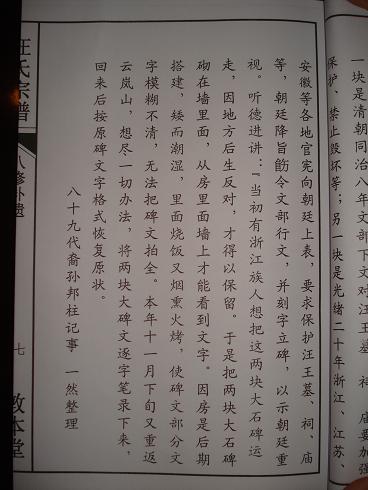 一块是清朝同治八年文部下文对汪王墓、祠、庙要加强
保护、禁止毁坏等；另一块是光绪二十年浙江、江苏、
安徽等各地官宪向朝廷上表，要求保护汪王墓、祠、庙
等，朝廷降旨饬令文部行文，并刻字立碑，以示朝廷重
视。听德进讲：“当初有浙江族人想把这两块大石碑运
走，因地方后生反对，才得以保留。于是把两块大石碑
砌在墙里面，从房里面墙上才能看到文字。因房是后期
搭建，矮而潮湿，里面烧饭又烟熏火烤，使碑文部分文
字模糊不清，无法把碑文拍全。本年十一月下旬又重返
云岚山，想尽一切办法，将两块大碑文逐字笔录下来，
回来后按原碑文字格式恢复原状。
八十九代裔孙邦柱记事 一然整理
汪氏宗谱
八修补遗
七
敦本堂